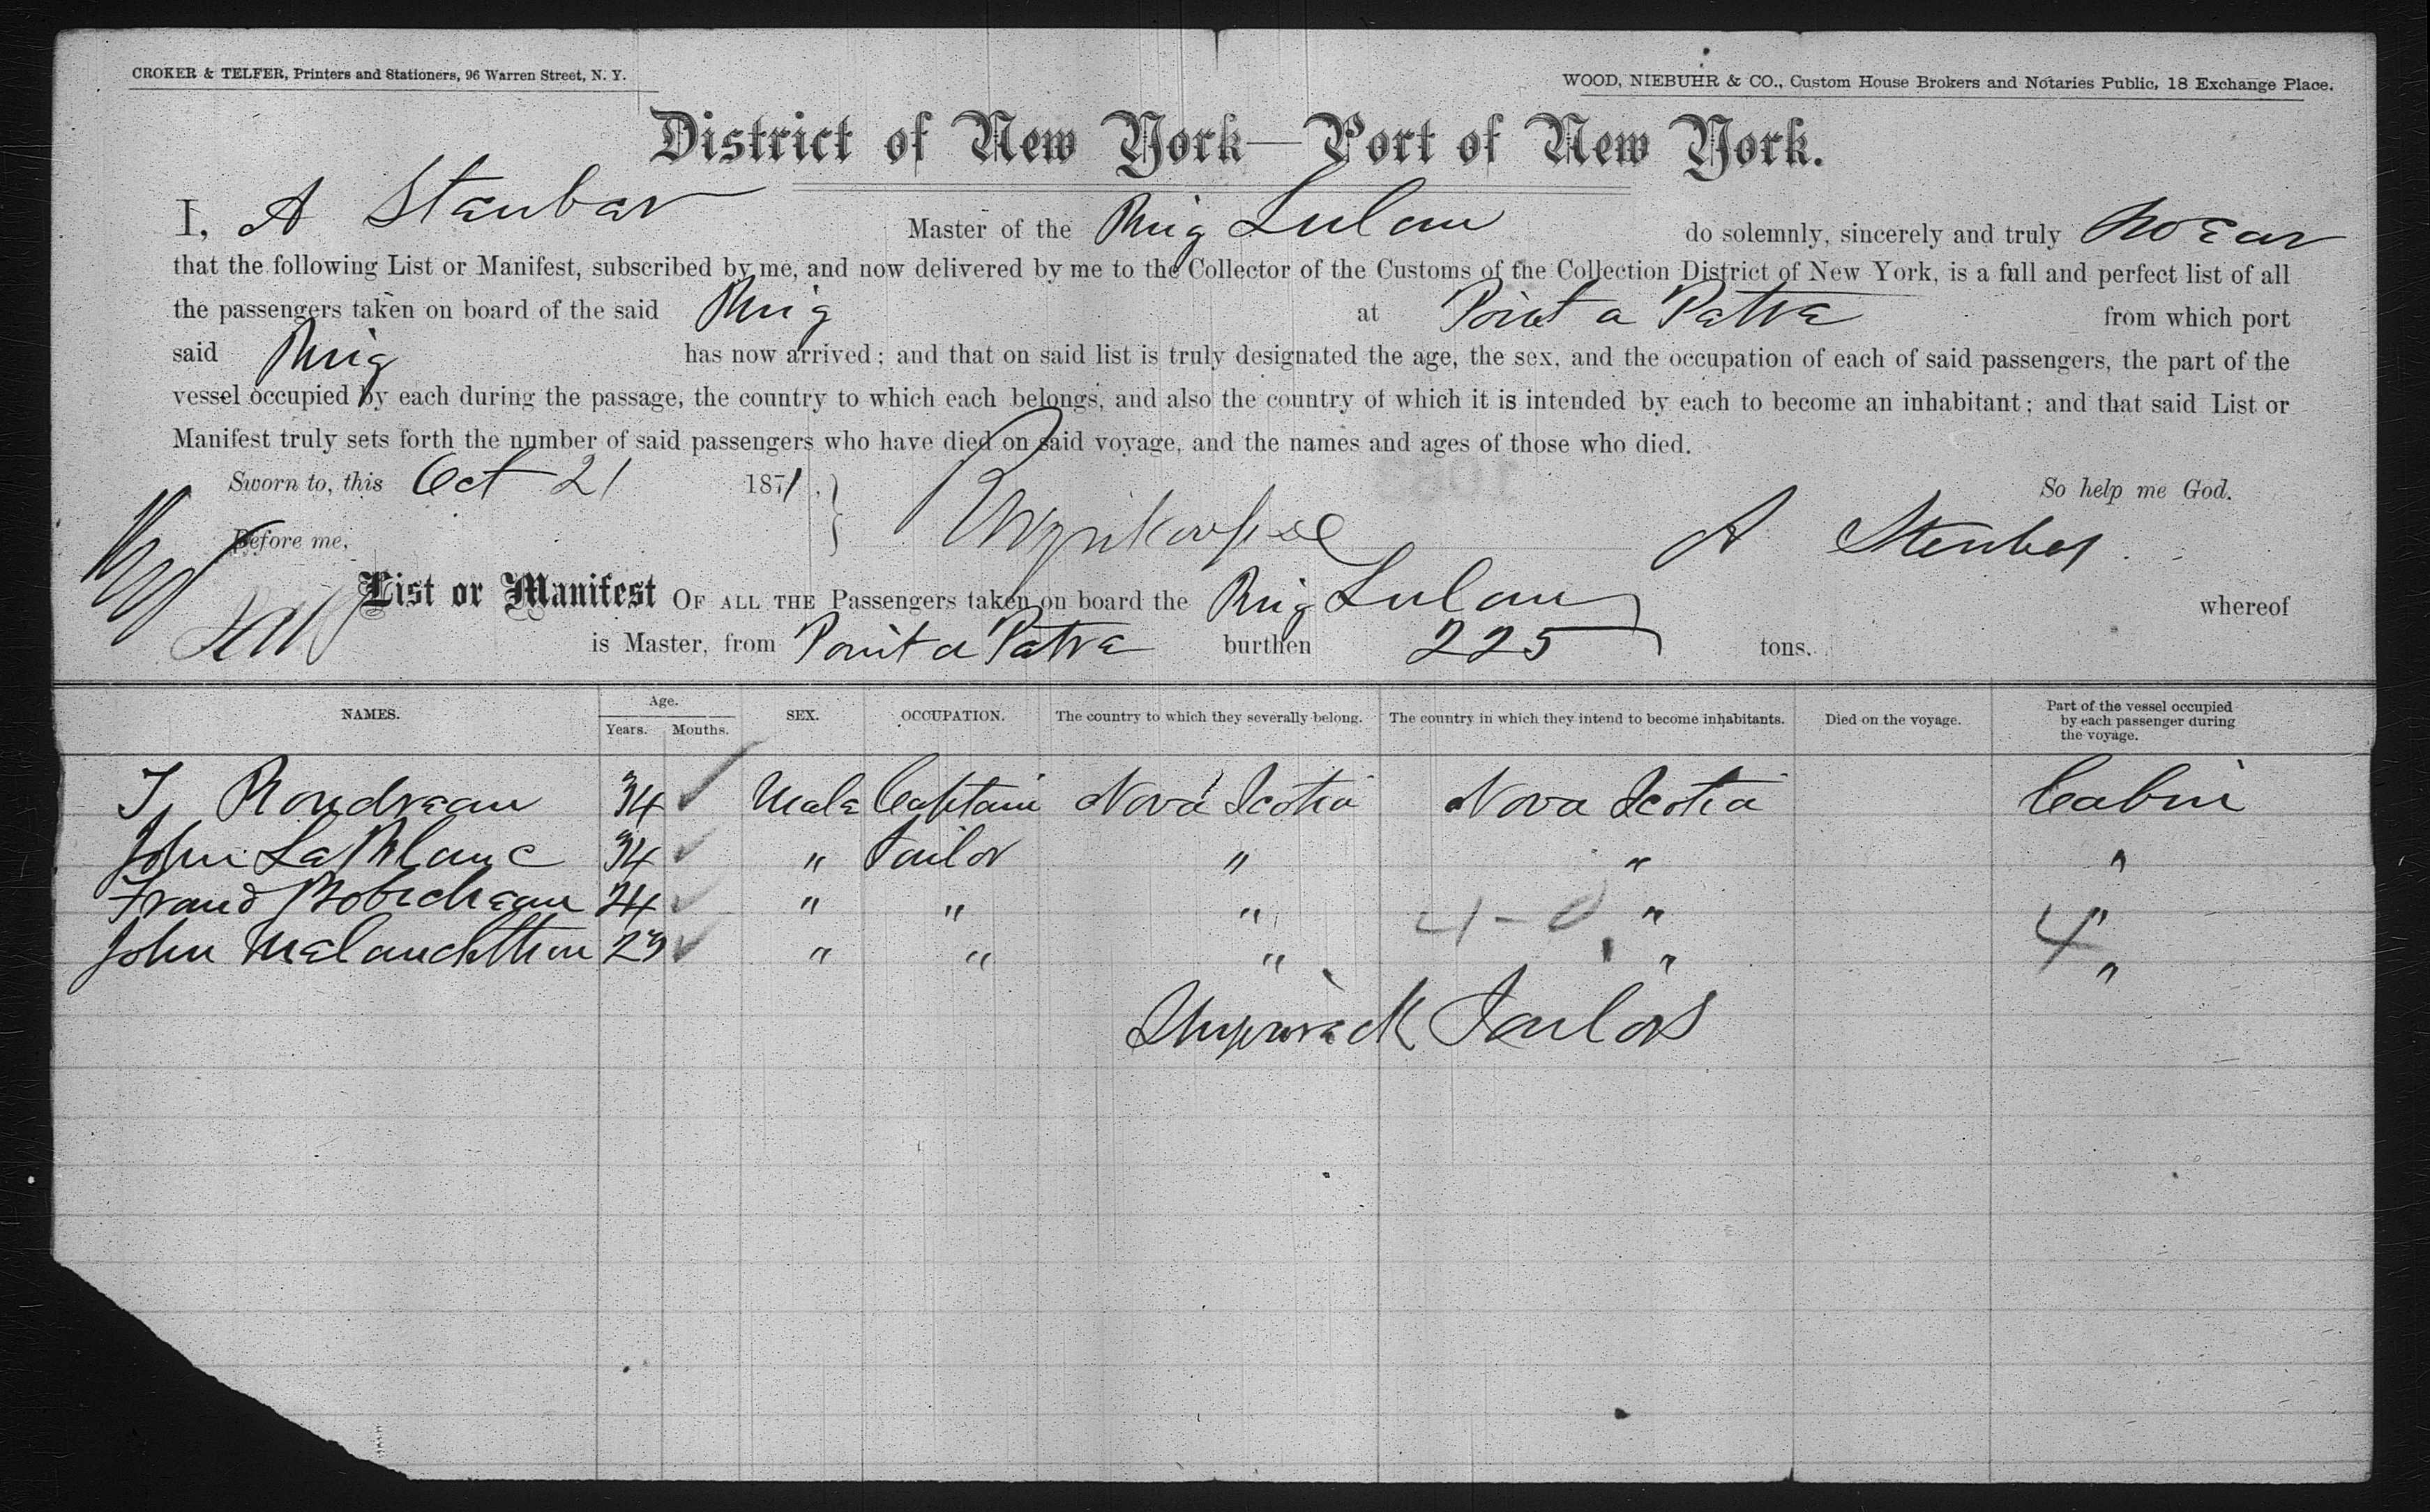 CROKER & TELFER, Printers and Stationers, 96 Warren Street, N. Y.
WOOD, NIEBUHR & CO., Custom House Brokers and Notaries Public, 18 Exchange Place.
District of New York—Port of New York.
I, A Master of the Brig Lulan do solemnly, sincerely and truly swear
that the following List or Manifest, subscribed by me, and now delivered by me to the Collector of the Customs of the Collection District of New York, is a full and perfect list of all
the passengers taken on board of the said Brig at Point a Patre from which port
said Brig has now arrived; and that on said list is truly designated the age, the sex, and the occupation of each of said passengers, the part of the
vessel occupied by each during the passage, the country to which each belongs, and also the country of which it is intended by each to become an inhabitant; and that said List or
Manifest truly sets forth the number of said passengers who have died on said voyage, and the names and ages of those who died.
Sworn to, this Oct 21 1871. So help me God.
Before me, A
List or Manifest OF ALL THE Passengers taken on board the Brig Lulan whereof
is Master, from Point a Patre burthen 225 tons.
NAMES. Age. Years. Months. SEX. OCCUPATION. The country to which they severally belong. The country in which they intend to become inhabitants. Died on the voyage. Part of the vessel occupied by each passenger during the voyage.
Boudreau 34 Male Captain Nova Scotia Nova Scotia Cabin
John LaBlanc 34 " Sailor " " "
Robicheau 24 " " " " "
John 23 " " " " "
4-0 4
Shipwreck Sailors